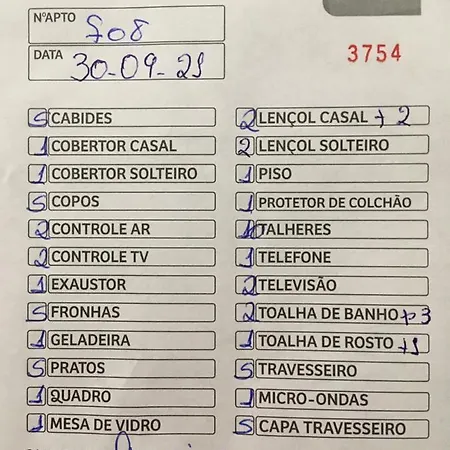 NºAPTO 508
DATA 30-09-21
3754
5 CABIDES
1 COBERTOR CASAL
1 COBERTOR SOLTEIRO
5 COPOS
2 CONTROLE AR
2 CONTROLE TV
1 EXAUSTOR
5 FRONHAS
1 GELADEIRA
5 PRATOS
1 QUADRO
1 MESA DE VIDRO
2 LENÇOL CASAL + 2
2 LENÇOL SOLTEIRO
1 PISO
1 PROTETOR DE COLCHÃO
TALHERES
1 TELEFONE
2 TELEVISÃO
2 TOALHA DE BANHO +3
1 TOALHA DE ROSTO +1
5 TRAVESSEIRO
1 MICRO-ONDAS
5 CAPA TRAVESSEIRO